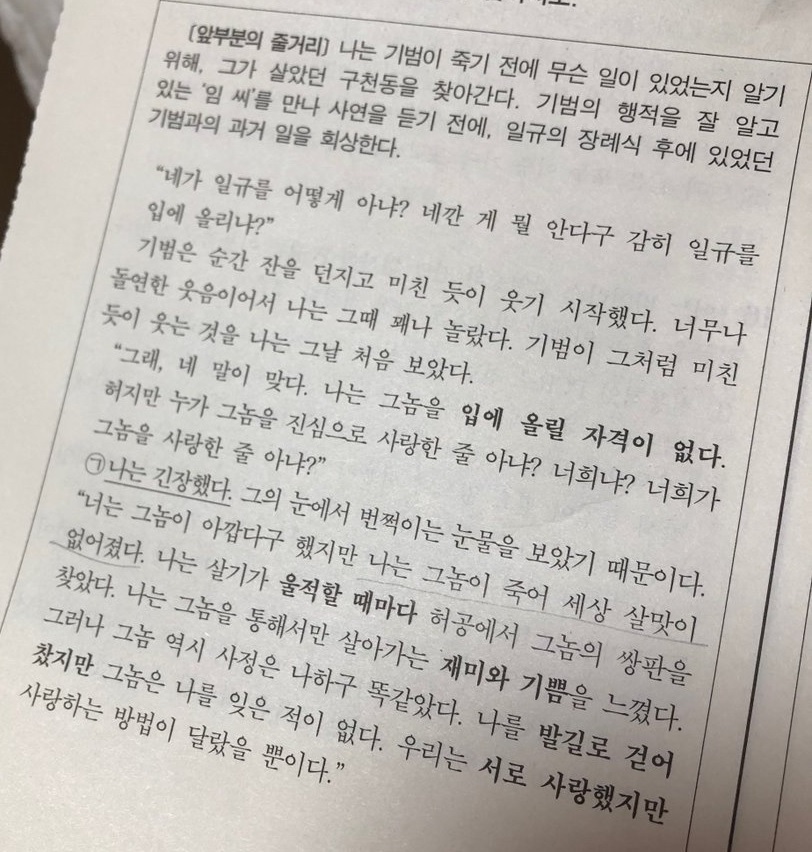 [앞부분의 줄거리] 나는 기범이 죽기 전에 무슨 일이 있었는지 알기
위해, 그가 살았던 구천동을 찾아간다. 기범의 행적을 잘 알고
있는 '임 씨'를 만나 사연을 듣기 전에, 일규의 장례식 후에 있었던
기범과의 과거 일을 회상한다.
"네가 일규를 어떻게 아냐? 네깐 게 뭘 안다구 감히 일규를
입에 올리냐?"
기범은 순간 잔을 던지고 미친 듯이 웃기 시작했다. 너무나
돌연한 웃음이어서 나는 그때 꽤나 놀랐다. 기범이 그처럼 미친
듯이 웃는 것을 나는 그날 처음 보았다.
"그래, 네 말이 맞다. 나는 그놈을 입에 올릴 자격이 없다.
허지만 누가 그놈을 진심으로 사랑한 줄 아냐? 너희냐? 너희가
그놈을 사랑한 줄 아냐?"
㉠나는 긴장했다. 그의 눈에서 번쩍이는 눈물을 보았기 때문이다.
"너는 그놈이 아깝다구 했지만 나는 그놈이 죽어 세상 살맛이
없어졌다. 나는 살기가 울적할 때마다 허공에서 그놈의 쌍판을
찾았다. 나는 그놈을 통해서만 살아가는 재미와 기쁨을 느꼈다.
그러나 그놈 역시 사정은 나하구 똑같았다. 나를 발길로 걷어
찼지만 그놈은 나를 잊은 적이 없다. 우리는 서로 사랑했지만
사랑하는 방법이 달랐을 뿐이다."